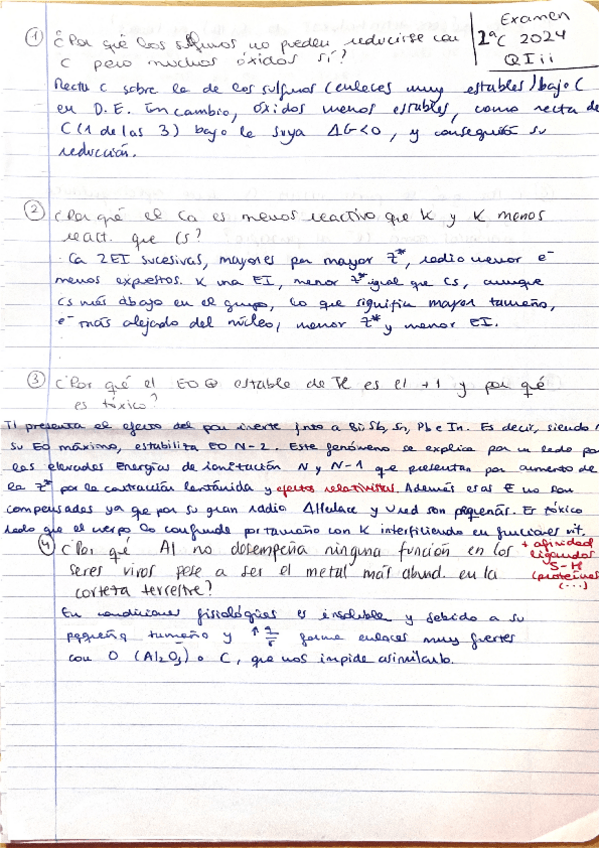 Examen
2ªC 2024
QIii
① ¿Por qué los sulfuros no pueden reducirse con
C pero muchos óxidos sí?
Recta C sobre la de los sulfuros (enlaces muy estables) bajo C
en D.E. En cambio, óxidos menos estables, como recta de
C (1 de las 3) bajo la suya ΔG<0, y conseguir su
reducción.
② ¿Por qué el Ca es menos reactivo que K y K menos
react. que Cs?
Ca 2EI sucesivas, mayores por mayor Z*, radio menor e⁻
menos expuestos. K una EI, menor Z* igual que Cs, aunque
Cs más abajo en el grupo, lo que significa mayor tamaño,
e⁻ más alejado del núcleo, menor Z* y menor EI.
③ ¿Por qué el EO ⊕ estable de Tl es el +1 y por qué
es tóxico?
Tl presenta el efecto del par inerte jnto a Bi Sb, Sn, Pb e In. Es decir, siendo
su EO máximo, estabiliza EO N-2. Este fenómeno se explica por un lado por
las elevadas Energías de ionización N y N-1 que presentan por aumento de
la Z* por la contracción lantánida y efectos relativistas. Además esas E no son
compensadas ya que por su gran radio ΔHenlace y Ured son pequeñas. Es tóxico
dado que el cuerpo lo confunde por tamaño con K interfiriendo en funciones vit.
+ afinidad
ligandos
S-H
(proteínas
(...)
④ ¿Por qué Al no desempeña ninguna función en los
seres vivos pese a ser el metal más abund. en la
corteza terrestre?
En condiciones fisiológicas es insoluble y debido a su
pequeño tamaño y ↑ q/r forma enlaces muy fuertes
con O (Al₂O₃) o C, que nos impide asimilarlo.